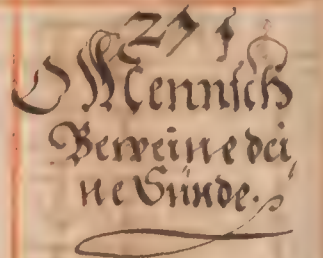 O Mennsch
Beweine dei
ne Sünde.